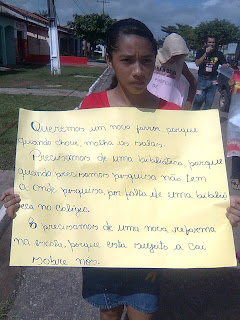 Queremos um novo forro porque
quando chove, molha as salas.
Precisamos de uma biblioteca porque
quando precisamos pesquisa não tem
a onde pesquisa por falta de uma biblio
teca no Colégio.
E precisamos de uma nova reforma
na escola, porque esta sujeito a cai
sobre nos.